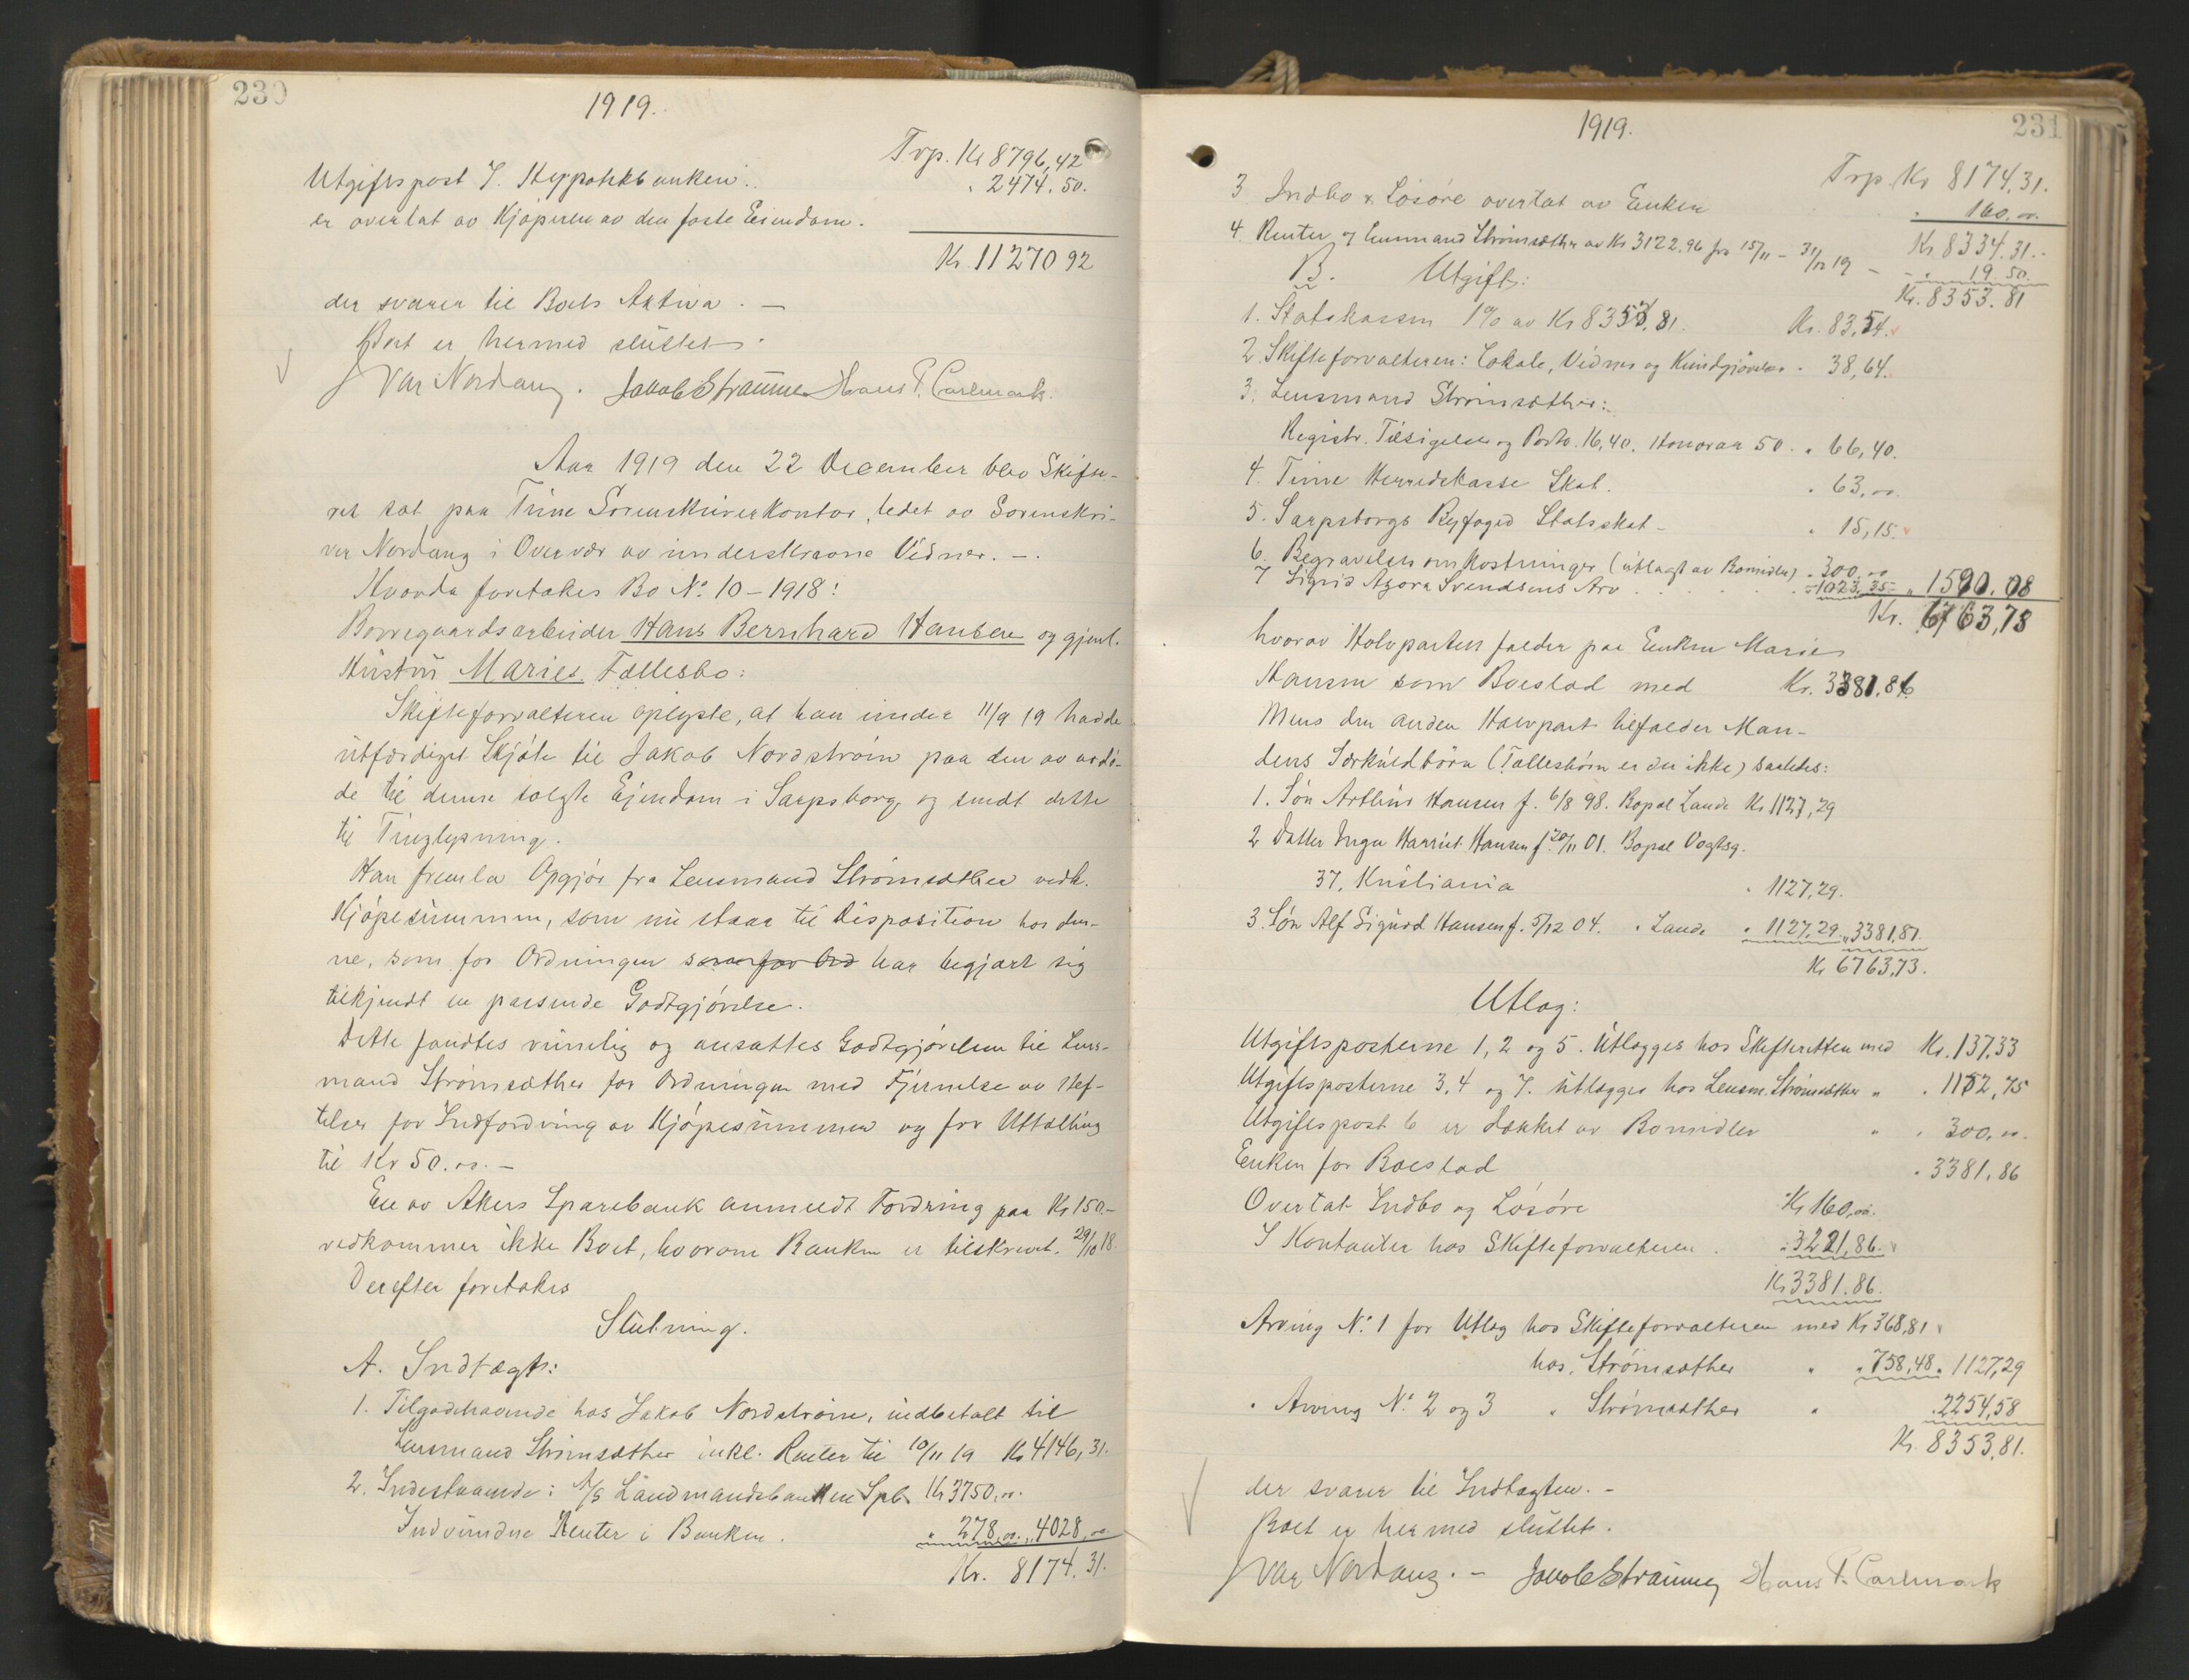 230
1919.
Trp. Kr 8796,42
Utgiftspost 7. Hypotekbanken.. " 2474.50.
er overtat av Kjøperen av den faste Eiendom.
Kr. 11270 92
der svarer til Boets Aktiva. —
Boet er hermed sluttet.
Ivar Nordang. Jakob Straume Hans P. Carlmark.
Aar 1919 den 22 December blev Skifte-
ret sat paa Tune Sorenskriverkontor, ledet av Sorenskri-
ver Nordang i Overvær av underskrevne Vidner. —.
Hvorda foretokes Bo No. 10 – 1918:
Borregaardsarbeider Hans Bernhard Hansen og gjenl.
Hustru Maries Fællesbo:
Skifteforvalteren oplyste, at han under 11/9 19 hadde
utfærdiget Skjøte til Jakob Nordstrøm paa den av avdø-
de til denne solgte Ejendom i Sarpsborg og sendt dette
til Tinglysning.
Han fremla Opgjør fra Lensmand Strømsæther vedk.
Kjøpesummen, som nu staar til Disposition hos den-
ne, som for Ordningen som for Ord har begjært sig
tilkjendt en passende Godtgjørelse.
Dette fandtes rimelig og ansattes Godtgjørelsen til Lens-
mand Strømsæther for Ordningen med Fjernelse av Hef-
telser for Indfordring av Kjøpesummen og for Uttælling
til Kr 50.00. —
En av Akers Sparebank anmeldt Fordring paa Kr 150.–
vedkommer ikke Boet, hvorom Banken er tilskrevet. 29/10 18.
Derefter foretokes
Slutning.
A. Indtægt:
1. Tilgodehavende hos Jakob Nordstrøm, indbetalt til
Lensmand Strømsæther inkl. Renter til 10/11 19 Kr 4146,31.
2. Indestaaende i A/S Landmandsbanken Spb. Kr 3750,00.
Indvundne Renter i Banken. " 278,00. " 4028,00
Kr. 8174.31.
231
1919.
Trp Kr 8174,31.
3 Indbo & Løsøre overtat av Enken " 160,00.
Kr. 8334.31.
4. Renter af Lensmand Strømsæther av Kr 3122.96 fra 15/11 – 31/12 19 – " 19.50.
Kr. 8353.81
B. Utgift:
1. Statskassen 1% av Kr 8353,81. Kr. 83,54.
2 Skifteforvalteren: Lokale, Vidner og Kundgjørelser " 38,64.
3. Lensmand Strømsæther:
Registr. Tilsigelser og Porto. 16,40. Honorar 50. " 66,40.
4. Tune Herredskasse Skat. " 63,00.
5. Sarpsborgs Byfoged Statsskat – " 15,15.
6. Begravelsesomkostninger (utlagt av Bomidler) " 300,00
7 Sigrid Agora Svendsens Arv . . . . " 1023.35 " 1590.08
Kr. 6763,73
hvorav Halvparten falder paa Enken Marie
Hansen som Boeslod med Kr. 3381.86
Mens den anden Halvpart tilfalder Man-
dens Særkuldbørn (Fællesbørn er der ikke) saaledes:
1. Søn Arthur Hansen f. 6/8 98. Bopæl Lande Kr 1127,29
2 Datter Inga Harriet Hansen f. 20/11 01. Bopæl Vogtsg.
37, Kristiania " 1127,29.
3. Søn Alf Sigurd Hansen f. 5/12 04. " Lande " 1127,29. " 3381,87.
Kr 6763,73.
Utlæg:
Utgiftsposterne 1, 2 og 5. Utlægges hos Skifteretten med Kr. 137,33
Utgiftsposterne 3, 4 og 7. utlægges hos Lensm. Strømsæther " " 1152,75
Utgiftspost 6 er dækket av Bomidler " " 300.00.
Enken for Boeslod " 3381,86
Overtat Indbo og Løsøre Kr 160,00.
I Kontanter hos Skifteforvalteren . " 3221,86.
Kr 3381.86.
Arving No. 1 for Utlæg hos Skifteforvalteren med Kr 368,81
hos Strømsæther " " 758,48 " 1127,29
" Arving No. 2 og 3 " Strømsæther " " 2254,58
Kr. 8353,81.
der svarer til Indtægten. –
Boet er hermed sluttet.
Ivar Nordang. – Jakob Straume Hans P. Carlmark